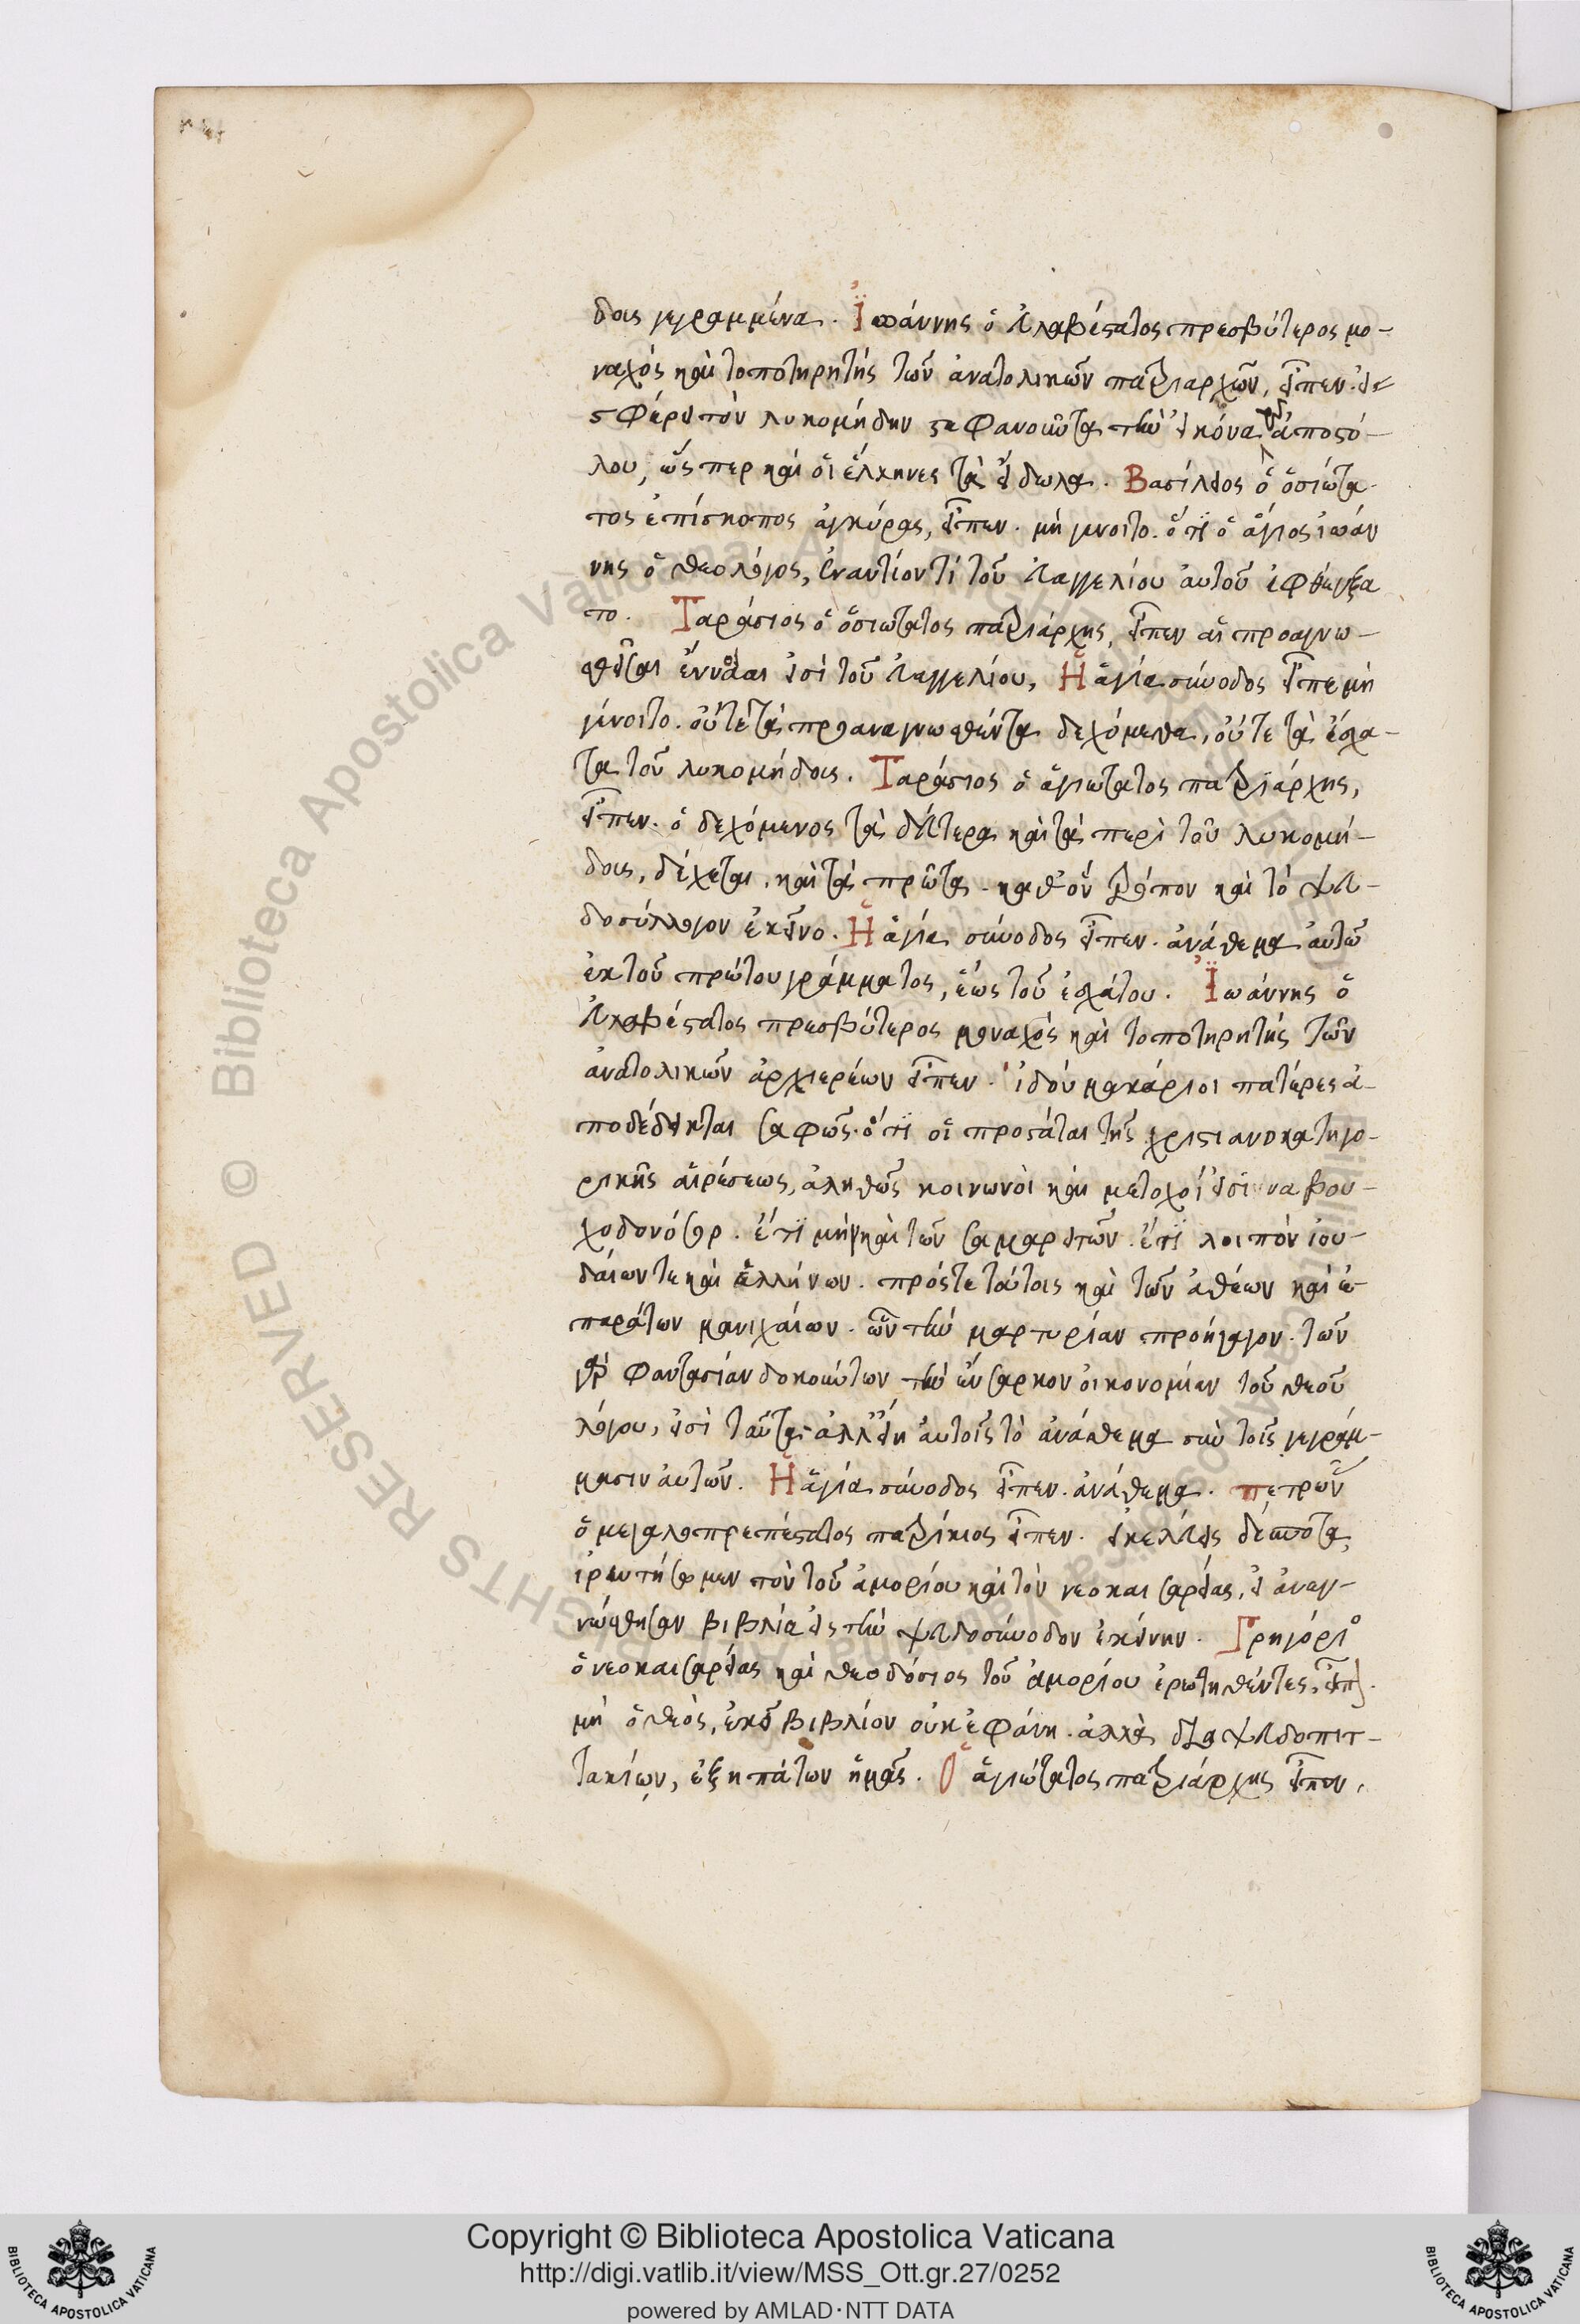 δους γεγραμμένα. Ἰωάννης ὁ εὐλαβέστατος πρεσβύτερος μο-
ναχὸς καὶ τοποτηρητὴς τῶν ἀνατολικῶν πατριαρχῶν, εἶπεν. εἰ-
σφέρει τὸν λυκομήδην στεφανοῦντα τὴν εἰκόνα τοῦ ἀποστό-
λου, ὥς περ καὶ οἱ ἕλληνες τὰ εἴδωλα. Βασίλειος ὁ ὁσιώτα-
τος ἐπίσκοπος ἀγκύρας, εἶπεν. μὴ γένοιτο. ὅτι ὁ ἅγιος ἰωάν
νης ὁ θεολόγος, ἐναντίον τί τοῦ εὐαγγελίου αὐτοῦ ἐφθέγξα
το. Ταράσιος ὁ ὁσιώτατος πατριάρχης, εἶπεν αἱ προαγνω-
σθεῖσαι ἔννοιαι εἰσὶ τοῦ εὐαγγελίου, Ἡ ἁγία σύνοδος εἶπε μὴ
γένοιτο. οὔτε τὰ προαναγνωσθέντα δεχόμεθα, οὔτε τὰ ἔσχα-
τα τοῦ λυκομήδους. Ταράσιος ὁ ἁγιώτατος πατριάρχης,
εἶπεν. ὁ δεχόμενος τὰ δεύτερα καὶ τὰ περὶ τοῦ λυκομή-
δους, δέχεται, καὶ τὰ πρῶτα. καθ' ὃν τρόπον καὶ τὸ ψευ-
δοσύλλογον ἐκεῖνο. Ἡ ἁγία σύνοδος εἶπεν. ἀνάθεμα αὐτῶ
ἐκ τοῦ πρώτου γράμματος, ἕως τοῦ ἐσχάτου. Ἰωάννης ὁ
εὐλαβέστατος πρεσβύτερος μοναχὸς καὶ τοποτηρητὴς τῶν
ἀνατολικῶν ἀρχιερέων εἶπεν. ἰδοὺ μακάριοι πατέρες ἀ-
ποδέδεικται σαφῶς. ὅτι οἱ προστάται τῆς χριστιανοκατηγο-
ρικῆς αἱρέσεως, ἀληθῶς κοινωνοὶ καὶ μετοχοί εἰσι ναβου-
χοδονόσορ. ἔτι μὴν καὶ τῶν σαμαρειτῶν. ἔτι λοιπὸν ἰου-
δαίων τε καὶ ἑλλήνων. πρός τε τούτοις καὶ τῶν ἀθέων καὶ ἐ-
παράτων μανιχαίων. ὧν τὴν μαρτυρίαν προήγαγον. τῶν
γὰρ φαντασίαν δοκούντων τὴν ἔνσαρκον οἰκονομίαν τοῦ θεοῦ
λόγου, εἰσὶ ταῦτα. ἀλλ' εἴη αὐτοῖς τὸ ἀνάθεμα σὺν τοῖς γεγράμ-
μασιν αὐτῶν. Ἡ ἁγία σύνοδος εἶπεν. ἀνάθεμα. Πετρωνᾶς
ὁ μεγαλοπρεπέστατος πατρίκιος εἶπεν. εἰ κελεύεις δέσποτα,
ἐρωτήσωμεν τὸν τοῦ ἀμορίου καὶ τὸν νεοκαισαρείας, εἰ ἀναγ-
νώσθησαν βιβλία εἰς τὴν ψευδοσύνοδον ἐκείνην. Γρηγόριος
ὁ νεοκαισαρείας καὶ θεοδόσιος τοῦ ἀμορίου ἐρωτηθέντες, εἶπον.
μὴ ὁ θεὸς, ἐκεῖ βιβλίον οὐκ ἐφάνη. ἀλλὰ διὰ ψευδοπιτ-
τακίων, ἐξηπάτων ἡμᾶς. Ὁ ἁγιώτατος πατριάρχης εἶπεν,
Copyright © Biblioteca Apostolica Vaticana
http://digi.vatlib.it/view/MSS_Ott.gr.27/0252
powered by AMLAD·NTT DATA